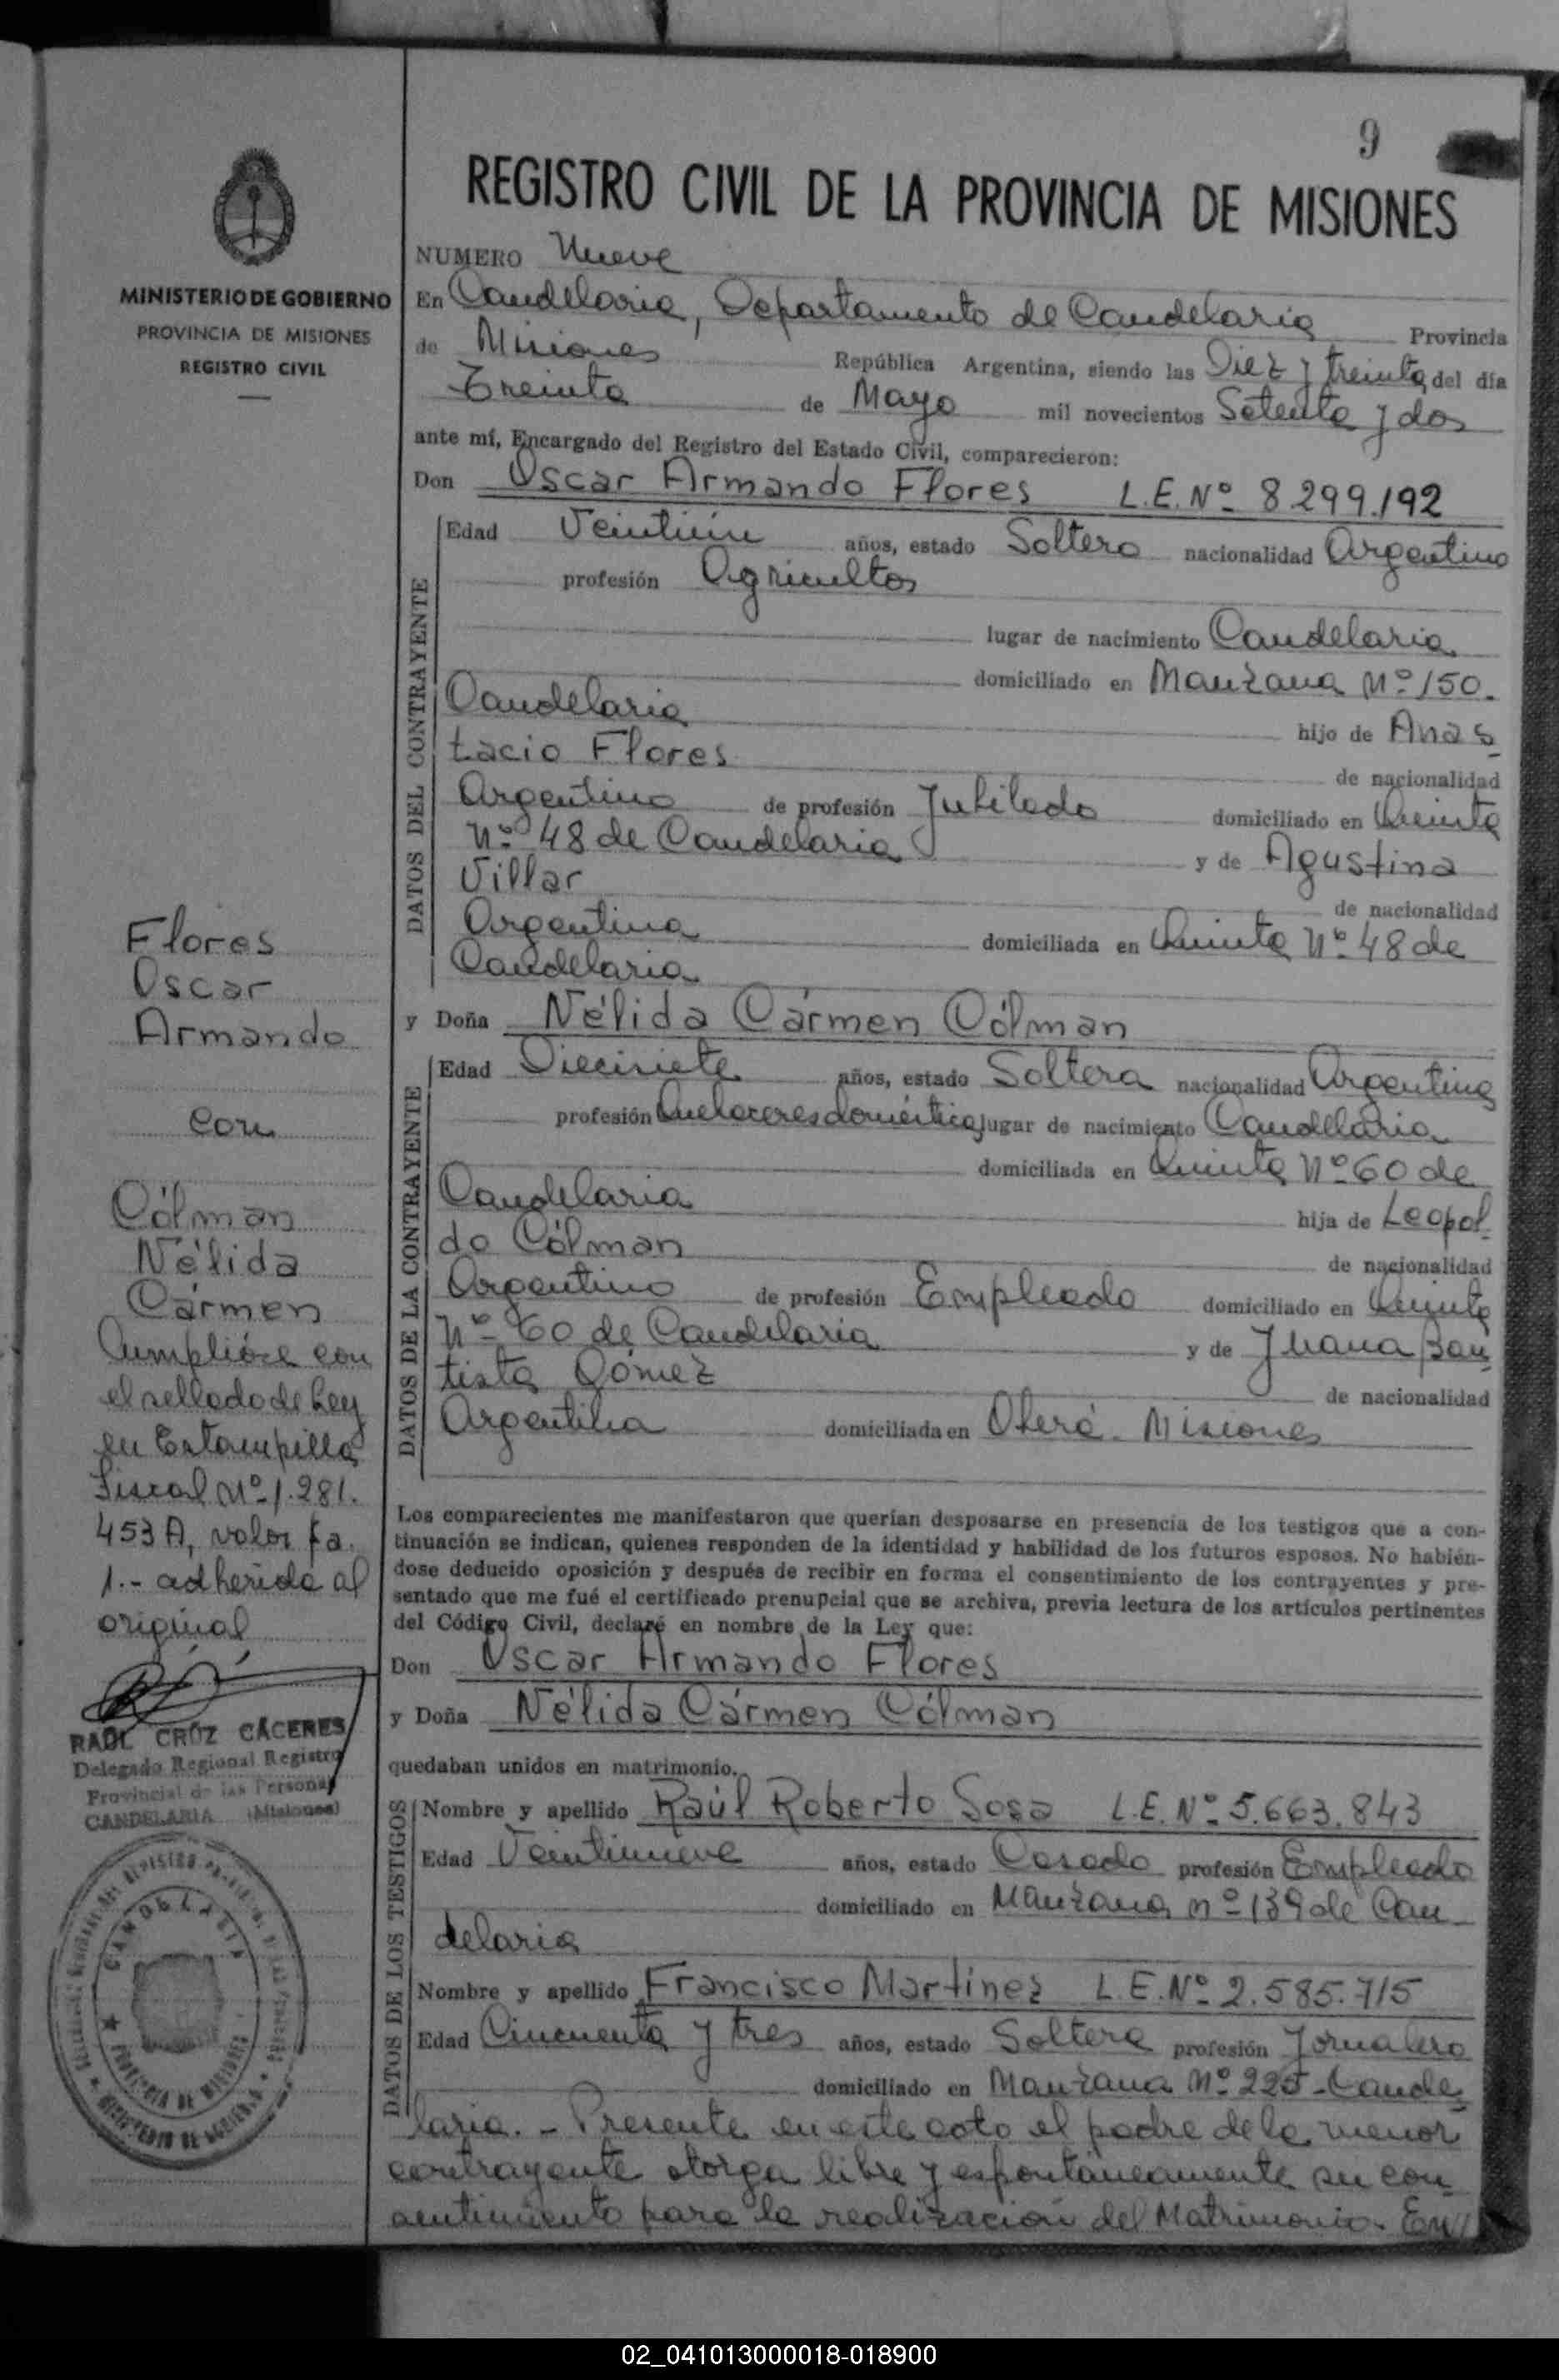 9
REGISTRO CIVIL DE LA PROVINCIA DE MISIONES
MINISTERIO DE GOBIERNO
PROVINCIA DE MISIONES
REGISTRO CIVIL
NUMERO Nueve
En Candelaria, Departamento de Candelaria Provincia
de Misiones República Argentina, siendo las Diez y treinta del día
Treinta de Mayo mil novecientos Setenta y dos
ante mí, Encargado del Registro del Estado Civil, comparecieron:
Don Oscar Armando Flores L.E. Nº 8.299.192
DATOS DEL CONTRAYENTE
Edad Veintiún años, estado Soltero nacionalidad Argentino
profesión Agricultor
lugar de nacimiento Candelaria
domiciliado en Manzana Nº 150.
Candelaria
hijo de Anas
tacio Flores
de nacionalidad
Argentino de profesión Jubilado domiciliado en Quinta
Nº 48 de Candelaria y de Agustina
Villar
de nacionalidad
Argentina domiciliada en Quinta Nº 48 de
Candelaria
y Doña Nélida Cármen Cólman
DATOS DE LA CONTRAYENTE
Edad Diecisiete años, estado Soltera nacionalidad Argentina
profesión Quehaceres domésticos lugar de nacimiento Candelaria
domiciliada en Quinta Nº 60 de
Candelaria
hija de Leopol
do Cólman
de nacionalidad
Argentino de profesión Empleado domiciliado en Quinta
Nº 60 de Candelaria y de Juana Bau
tista Gómez
de nacionalidad
Argentina domiciliada en Oberá - Misiones
Los comparecientes me manifestaron que querían desposarse en presencia de los testigos que a con-
tinuación se indican, quienes responden de la identidad y habilidad de los futuros esposos. No habién-
dose deducido oposición y después de recibir en forma el consentimiento de los contrayentes y pre-
sentado que me fué el certificado prenupcial que se archiva, previa lectura de los artículos pertinentes
del Código Civil, declaré en nombre de la Ley que:
Don Oscar Armando Flores
y Doña Nélida Cármen Cólman
quedaban unidos en matrimonio.
DATOS DE LOS TESTIGOS
Nombre y apellido Raúl Roberto Sosa L.E. Nº 5.663.843
Edad Veintinueve años, estado Casado profesión Empleado
domiciliado en Manzana nº 139 de Can
delaria
Nombre y apellido Francisco Martinez L.E. Nº 2.585.715
Edad Cincuenta y tres años, estado Soltero profesión Jornalero
domiciliado en Manzana Nº 225 - Cande
laria. - Presente en este acto el padre de la menor
contrayente otorga libre y espontáneamente su con
sentimiento para la realización del Matrimonio. En
Flores
Oscar
Armando
con
Cólman
Nélida
Cármen
Cumplióse con
el sellado de Ley
en Estampilla
Fiscal Nº 1.281.
453 A, valor
1.- adherida al
original
RAÚL CRUZ CÁCERES
Delegado Regional Registro
Provincial de las Personas
CANDELARIA (Misiones)
CANDELARIA
PROVINCIA DE MISIONES
MINISTERIO DE GOBIERNO
02_041013000018-018900